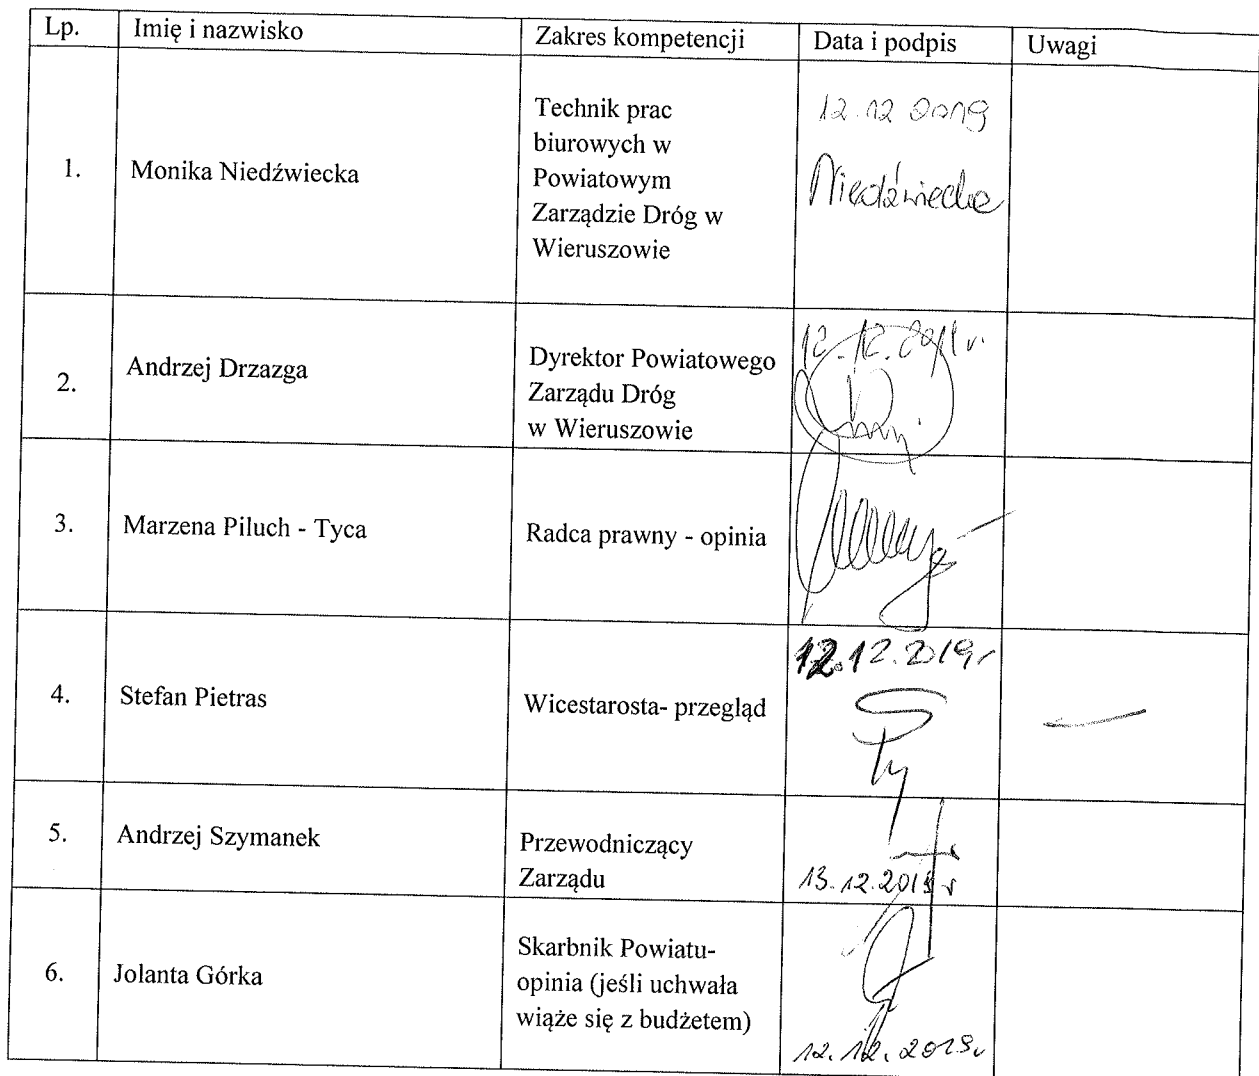 Lp. Imię i nazwisko Zakres kompetencji Data i podpis Uwagi
1. Monika Niedźwiecka
Technik prac
biurowych w
Powiatowym
Zarządzie Dróg w
Wieruszowie
12.12 2019
Niedźwiecka
2. Andrzej Drzazga
Dyrektor Powiatowego
Zarządu Dróg
w Wieruszowie
12.12.2019 r.
3. Marzena Piluch - Tyca Radca prawny - opinia
4. Stefan Pietras Wicestarosta- przegląd
12.12.2019r
5. Andrzej Szymanek
Przewodniczący
Zarządu
13.12.2019 r
6. Jolanta Górka
Skarbnik Powiatu-
opinia (jeśli uchwała
wiąże się z budżetem)
12.12.2019r